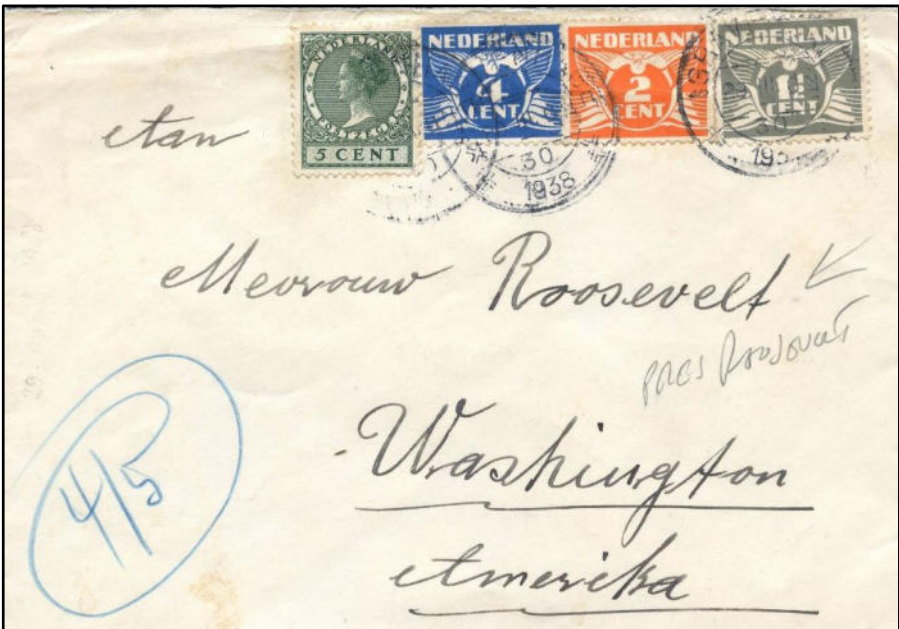 NEDERLAND POSTZEGEL 5 CENT
NEDERLAND 4 CENT
NEDERLAND 2 CENT
NEDERLAND 1½ CENT
30
1938
30
193
Aan
Mevrouw Roosevelt
PRES Roosevelt
Washington
Amerika
4/5